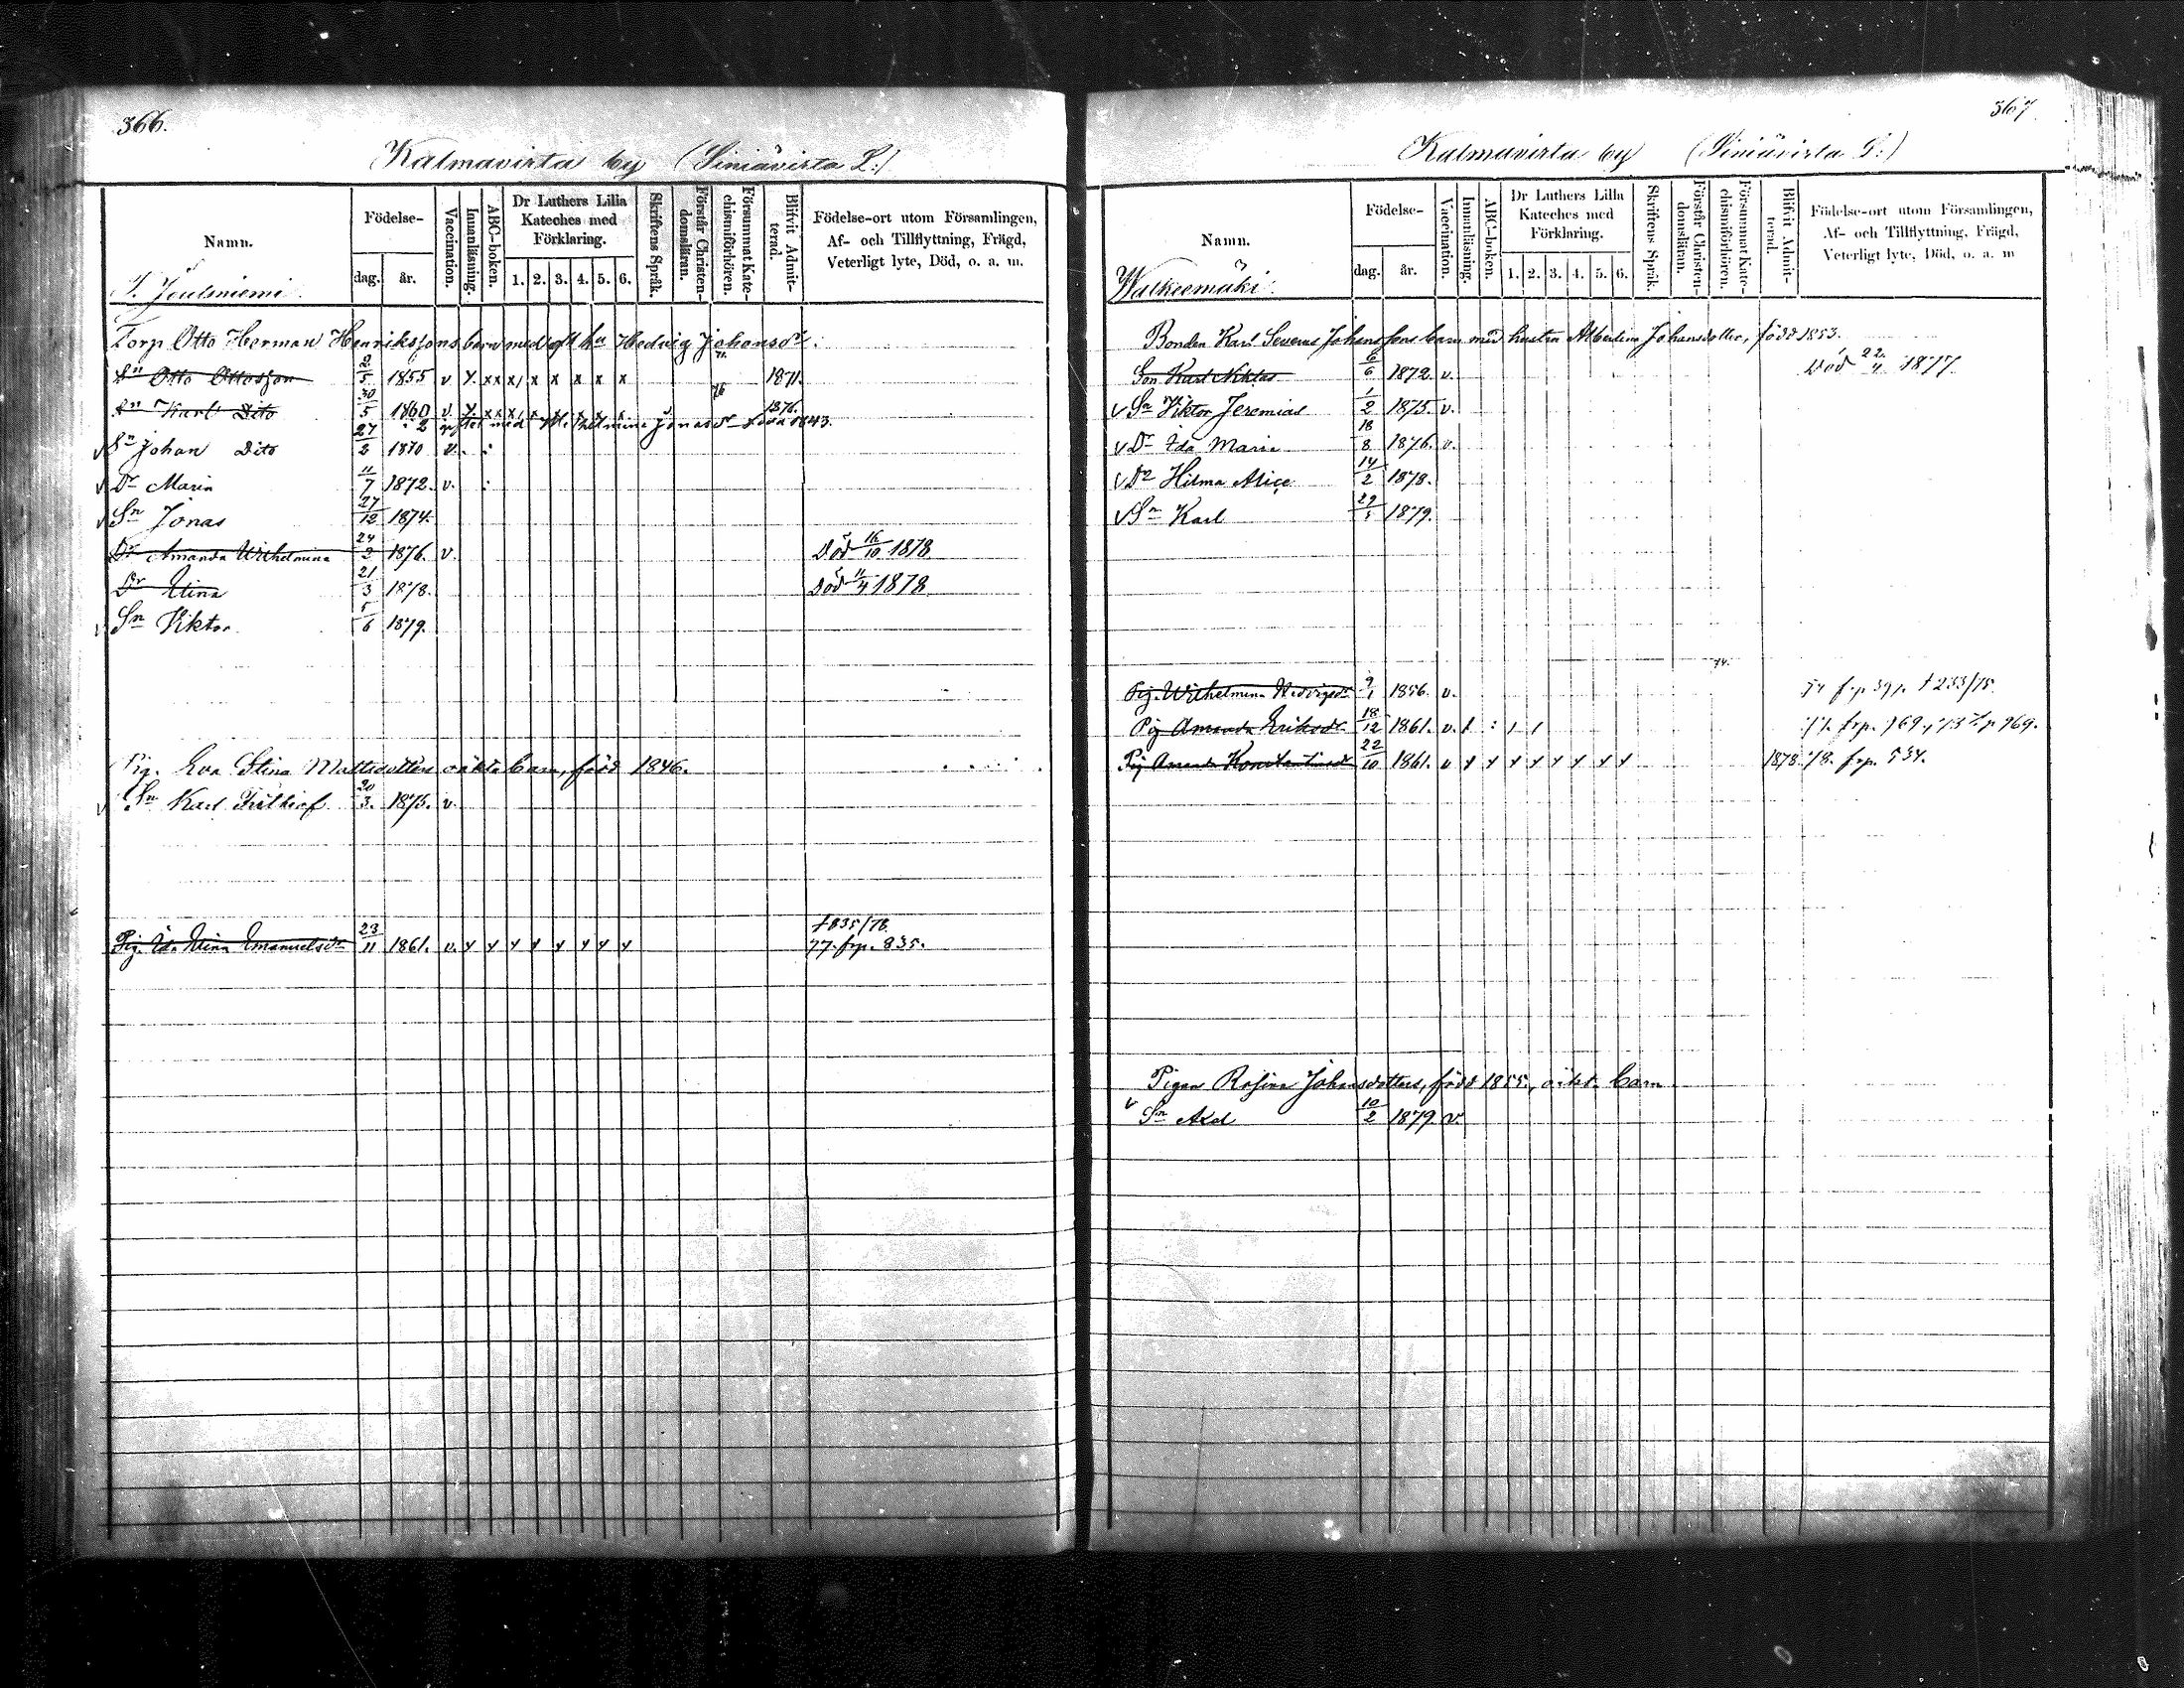 366.
Kalmavirta by (Siniävirta L:)
Namn.
Födelse-
dag.
år.
Vaccination.
Innanläsning.
ABC-boken.
Dr Luthers Lilla Kateches med Förklaring.
1. 2. 3. 4. 5. 6.
Skriftens Språk.
Förstår Christendomsläran.
Försummat Katechismiförhören.
Blifvit Admitterad.
Födelse-ort utom Församlingen,
Af- och Tillflyttning, Frägd,
Veterligt lyte, Död, o. a. m.
Torp Otto Herman Henrikssons barn med Hedvig Johansdr.
Sn Otto Ottosson 2/5 1855 v y. x x x x x x x x 71. 1871.
Sn Karl Dito 30/5 1860 v. y. x x x x x x x 76 1876.
2 giftet med Wilhelmina Jonasdr född 1843.
v Sn Johan Dito 27/2 1870 v. :
v Dr Maria 11/7 1872. v. :
v Sn Jonas 27/12 1874.
Dr Amanda Wilhelmina 24/2 1876. v. Död 16/10 1878
Dr Stina 21/3 1878. Död 11/4 1878
v Sn Viktor 5/6 1879.
Pig. Eva Stina Mattsdotters oäkta barn, född 1846.
v Sn Karl Frithiof 20/3. 1875. v.
†835/78.
Pig. Ida Stina Emanuelsdr 23/11 1861. v. y y y y y y y y 77. frp. 835.
367
Kalmavirta by (Siniävirta L:)
Namn.
Walkeemäki.
Födelse-
dag.
år.
Vaccination.
Innanläsning.
ABC-boken.
Dr Luthers Lilla Kateches med Förklaring.
1. 2. 3. 4. 5. 6.
Skriftens Språk.
Förstår Christendomsläran.
Försummat Katechismiförhören.
Blifvit Admitterad.
Födelse-ort utom Församlingen,
Af- och Tillflyttning, Frägd,
Veterligt lyte, Död, o. a. m
Bonden Karl Severus Johanssons barn med hustru Albertina Johansdotter, född 1853.
Son Karl Niklas 6/6 1872. v. Död 22/4 1877.
v Sn Viktor Jeremias 1/2 1875. v.
v Dr Ida Maria 18/8 1876. v.
v Dr Hilma Alice 14/2 1878.
v Sn Karl 29/5 1879.
74.
Pig. Wilhelmina Hedvigsdr 9/1 1856. v. 74 frp 391. †233/75.
Pig Amanda Eriksdr 18/12 1861. v. / : / / 77. frp. 769.
Pig Amanda Konstantinsdr 22/10 1861. v y y y y y y y y 1878. 78. frp. 534.
Pigan Rosina Johansdotters, född 1855, oäkt. barn
v Sn Axel 10/2 1879. v.